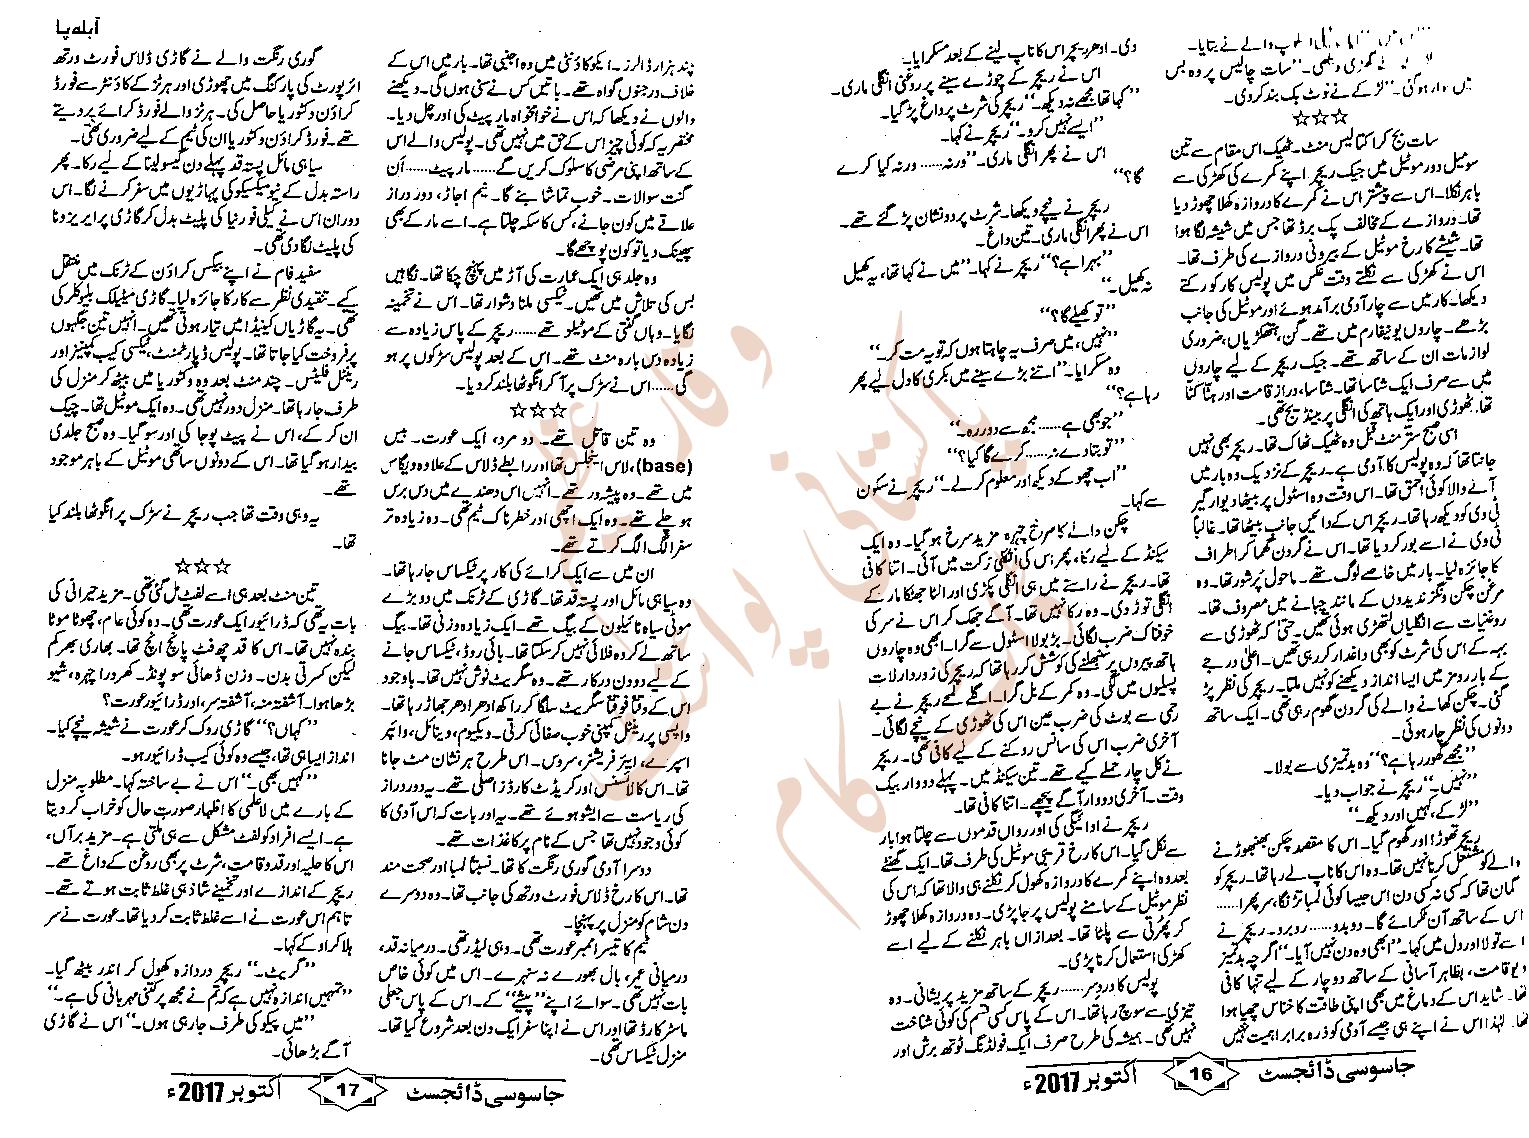 سات بج کر اکتالیس منٹ۔ ٹھیک اس مقام سے تین
سو میل دور موٹیل میں جیک ریچر اپنے کمرے کی کھڑکی سے
باہر نکلا۔ اس سے پیشتر اس نے کمرے کا دروازہ کھلا چھوڑ دیا
تھا۔ دروازے کے مخالف پک برڈ تھا جس میں شیشہ لگا ہوا
تھا۔ شیشے کا رخ موٹیل کے بیرونی دروازے کی طرف تھا۔
اس نے کھڑکی سے نکلتے وقت عکس میں پولیس کار کو رکتے
دیکھا۔ کار میں سے چار آدمی برآمد ہوئے اور موٹیل کی جانب
بڑھے۔ چاروں یونیفارم میں تھے۔ گن، ہتھکڑیاں، ضروری
لوازمات ان کے ساتھ تھے۔ جیک ریچر کے لیے چاروں
میں سے صرف ایک شناسا تھا۔ شناسا، دراز قامت اور ہٹا کٹا
تھا۔ ٹھوڑی اور ایک ہاتھ کی انگلی پر بینڈیج تھی۔
اسی صبح ستر منٹ قبل وہ ٹھیک ٹھاک تھا۔ ریچر بھی نہیں
جانتا تھا کہ وہ پولیس کا آدمی ہے۔ ریچر کے نزدیک وہ بار میں
آنے والا کوئی احمق تھا۔ اس وقت وہ اسٹول پر بیٹھا دیوار گیر
ٹی وی کو دیکھ رہا تھا۔ ریچر اس کے دائیں جانب بیٹھا تھا۔ غالباً
ٹی وی نے اسے بور کر دیا تھا۔ اس نے گردن گھما کر اطراف
کا جائزہ لیا۔ بار میں خاصے لوگ تھے۔ ماحول پرشور تھا۔ وہ
مرغن چکن ونگز ندیدوں کے مانند چبانے میں مصروف تھا۔
روغنیات سے انگلیاں لتھڑی ہوئی تھیں۔ حتیٰ کہ ٹھوڑی سے
بہہ کے اس کی شرٹ کو بھی داغدار کر رہی تھیں۔ اعلیٰ درجے
کے بار رومز میں ایسا انداز دیکھنے کو نہیں ملتا۔ ریچر کی نظر پڑ
گئی۔ چکن کھانے والے کی گردن گھوم رہی تھی۔ ایک ساتھ
دونوں کی نظر چار ہوئی۔
’’مجھے گھور رہا ہے؟‘‘ وہ بدتمیزی سے بولا۔
’’نہیں۔‘‘ ریچر نے جواب دیا۔
’’لڑکے، کہیں اور دیکھ۔‘‘
ریچر تھوڑا اور گھوم گیا۔ اس کا مقصد چکن بھنبھوڑنے
والے کو مشتعل کرنا نہیں تھا۔ وہ اس کا ناپ لے رہا تھا۔ ریچر کو
گمان تھا کہ کسی نہ کسی دن اس جیسا کوئی لمبا تڑنگا، سر پھرا......
اس کے ساتھ آن ٹکرائے گا۔ دوبدو...... روبرو۔ ریچر نے
اسے تولا اور دل میں کہا۔ ’’ابھی وہ دن نہیں آیا۔‘‘ اگرچہ بدتمیز
دیو قامت، بظاہر آسانی کے ساتھ دو چار کے لیے تنہا کافی
تھا۔ شاید اس کے دماغ میں بھی اپنی طاقت کا خناس چھپا ہوا
تھا۔ لہٰذا اس نے اپنے ہی جیسے آدمی کو ذرہ برابر اہمیت نہیں
جاسوسی ڈائجسٹ 16 اکتوبر 2017ء
دی۔ ادھر ریچر اس کا ناپ لینے کے بعد مسکرایا۔
اس نے ریچر کے چوڑے سینے پر روغنی انگلی ماری۔
’’کہا تھا مجھے نہ دیکھ۔‘‘ ریچر کی شرٹ پر داغ پڑ گیا۔
’’ایسے نہیں کرو۔‘‘ ریچر نے کہا۔
اس نے پھر انگلی ماری۔ ’’ورنہ...... ورنہ کیا کرے
گا؟‘‘
ریچر نے نیچے دیکھا۔ شرٹ پر دو نشان پڑ گئے تھے۔
اس نے پھر انگلی ماری۔ تین داغ۔
’’بہرا ہے؟‘‘ ریچر نے کہا۔ ’’میں نے کہا تھا، یہ کھیل
نہ کھیل۔‘‘
’’تو کھیلے گا؟‘‘
’’نہیں، میں صرف یہ چاہتا ہوں کہ تو یہ مت کر۔‘‘
وہ مسکرایا۔ ’’اتنے بڑے سینے میں بکری کا دل لیے پھر
رہا ہے؟‘‘
’’جو بھی ہے...... مجھ سے دور رہ۔‘‘
’’تو بتا دے نہ...... کرے گا کیا؟‘‘
’’اب چھو کے دیکھ اور معلوم کر لے۔‘‘ ریچر نے سکون
سے کہا۔
چکن والے کا سرخ چہرہ مزید سرخ ہو گیا۔ وہ ایک
سیکنڈ کے لیے رکا، پھر اس کی انگلی حرکت میں آئی۔ اتنا کافی
تھا۔ ریچر نے راستے میں ہی انگلی پکڑی اور الٹا جھٹکا مار کے
انگلی توڑ دی۔ وہ رکا نہیں تھا۔ آگے جھک کر اس نے سر کی
خوفناک ضرب لگائی۔ بڑبولا اسٹول سے گرا۔ ابھی وہ چاروں
ہاتھ پیروں پر سنبھلنے کی کوشش کر رہا تھا کہ ریچر کی زوردار لات
پسلیوں میں لگی۔ وہ کمر کے بل گرا۔ اگلے لمحے ریچر نے بے
رحمی سے بوٹ کی ضرب عین اس کی ٹھوڑی کے نیچے لگائی۔
آخری ضرب اس کی سانس روکنے کے لیے کافی تھی۔ ریچر
نے کل چار حملے کیے تھے۔ تین سیکنڈ میں۔ پہلے دو وار بیک
وقت۔ آخری دو وار آگے پیچھے۔ اتنا کافی تھا۔
ریچر نے ادائیگی کی اور رواں قدموں سے چلتا ہوا بار
سے نکل گیا۔ اس کا رخ قریبی موٹیل کی طرف تھا۔ ایک گھنٹے
بعد وہ اپنے کمرے کا دروازہ کھول کر نکلنے ہی والا تھا کہ اس کی
نظر موٹیل کے سامنے پولیس پر جا پڑی۔ وہ دروازہ کھلا چھوڑ
کر پھرتی سے پلٹا تھا۔ بعد ازاں باہر نکلنے کے لیے اسے
کھڑکی استعمال کرنا پڑی۔
پولیس کا درد سر...... ریچر کے ساتھ مزید پریشانی۔ وہ
تیزی سے سوچ رہا تھا۔ اس کے پاس کسی قسم کی کوئی شناخت
نہیں تھی۔ ہمیشہ کی طرح صرف ایک فولڈنگ ٹوتھ برش اور
آبلہ پا
چند ہزار ڈالرز۔ ایکو کاؤنٹی میں وہ اجنبی تھا۔ بار میں اس کے
خلاف درجنوں گواہ تھے۔ باتیں کس نے سنی ہوں گی۔ دیکھنے
والوں نے دیکھا کہ اس نے خوامخواہ مار پیٹ کی اور چل دیا۔
مختصر یہ کہ کوئی چیز اس کے حق میں نہیں تھی۔ پولیس والے اس
کے ساتھ اپنی مرضی کا سلوک کریں گے...... مار پیٹ...... اَن
گنت سوالات۔ خوب تماشا بنے گا۔ نیم اجاڑ، دور دراز
علاقے میں کون جانے، کس کا سکہ چلتا ہے۔ اسے مار کے بھی
پھینک دیا تو کون پوچھے گا۔
وہ جلد ہی ایک عمارت کی آڑ میں پہنچ چکا تھا۔ نگاہیں
بس کی تلاش میں تھیں۔ ٹیکسی ملنا دشوار تھا۔ اس نے تخمینہ
لگایا۔ وہاں گنتی کے موٹیلو تھے...... ریچر کے پاس زیادہ سے
زیادہ دس بارہ منٹ تھے۔ اس کے بعد پولیس سڑکوں پر ہو
گی...... اس نے سڑک پر آ کر انگوٹھا بلند کر دیا۔
☆☆☆
وہ تین قاتل تھے۔ دو مرد، ایک عورت۔ بیس
(base)، لاس اینجلس تھا اور رابطے ڈلاس کے علاوہ ویگاس
میں تھے۔ وہ پیشہ ور تھے۔ انہیں اس دھندے میں دس برس
ہو چلے تھے۔ وہ ایک اچھی اور خطرناک ٹیم تھی۔ وہ زیادہ تر
سفر الگ الگ کرتے تھے۔
ان میں سے ایک کرائے کی کار پر ٹیکساس جا رہا تھا۔
وہ سیاہی مائل اور پستہ قد تھا۔ گاڑی کے ٹرنک میں دو بڑے
موٹی سیاہ نائیلون کے بیگ تھے۔ ایک زیادہ وزنی تھا۔ بیگ
ساتھ لے کر وہ فلائی نہیں کر سکتا تھا۔ بائی روڈ، ٹیکساس جانے
کے لیے دو دن درکار تھے۔ وہ سگریٹ نوش نہیں تھا۔ باوجود
اس کے وقتاً فوقتاً سگریٹ سلگا کر راکھ ادھر ادھر جھاڑ رہا تھا۔
واپسی پر رینٹل کمپنی خوب صفائی کرتی۔ ویکیوم، وینائل، وائپر
اسپرے، ایئر فریشنر، سروس۔ اس طرح ہر نشان مٹ جانا
تھا۔ اس کا لائسنس اور کریڈٹ کارڈز اصلی تھے۔ یہ دور دراز
کی ریاست سے ایشو ہوئے تھے۔ یہ اور بات کہ اس آدمی کا
کوئی وجود نہیں تھا جس کے نام پر کاغذات تھے۔
دوسرا آدمی گوری رنگت کا تھا۔ نسبتاً لمبا اور صحت مند
تھا۔ اس کا رخ ڈلاس فورٹ ورتھ کی جانب تھا۔ وہ دوسرے
دن شام کو منزل پر پہنچا۔
ٹیم کا تیسرا ممبر عورت تھی۔ وہی لیڈر تھی۔ درمیانہ قد،
درمیانی عمر، بال بھورے نہ سنہرے۔ اس میں کوئی خاص
بات نہیں تھی۔ سوائے اپنے ’’پیشے‘‘ کے۔ اس کے پاس جعلی
ماسٹر کارڈ تھا اور اس نے اپنا سفر ایک دن بعد شروع کیا تھا۔
منزل ٹیکساس تھی۔
گوری رنگت والے نے گاڑی ڈلاس فورٹ ورتھ
ائرپورٹ کی پارکنگ میں چھوڑی اور ہرٹز کے کاؤنٹر سے فورڈ
کراؤن وکٹوریا حاصل کی۔ ہرٹز والے فورڈ کرائے پر دیتے
تھے۔ فورڈ کراؤن وکٹوریا ان کی ٹیم کے لیے ضروری تھی۔
سیاہی مائل پستہ قد پہلے دن گیسولینا کے لیے رکا۔ پھر
راستہ بدل کے نیو میکسیکو کی پہاڑیوں میں سفر کرنے لگا۔ اس
دوران اس نے کیلی فورنیا کی پلیٹ بدل کر گاڑی پر ایریزونا
کی پلیٹ لگا دی تھی۔
سفید فام نے اپنے بیگس کراؤن کے ٹرنک میں منتقل
کیے۔ تنقیدی نظر سے کار کا جائزہ لیا۔ گاڑی میٹیلک بلیو کلر کی
تھی۔ یہ گاڑیاں کینیڈا میں تیار ہوئی تھیں۔ انہیں تین جگہوں
پر فروخت کیا جاتا تھا۔ پولیس ڈپارٹمنٹ، ٹیکسی کیب کمپنیز اور
رینٹل فلیٹس۔ چند منٹ بعد وہ وکٹوریا میں بیٹھ کر منزل کی
طرف جا رہا تھا۔ منزل دور نہیں تھی۔ وہ ایک موٹیل تھا۔ چیک
ان کر کے، اس نے پیٹ پوجا کی اور سو گیا۔ وہ صبح جلدی
بیدار ہو گیا تھا۔ اس کے دونوں ساتھی موٹیل کے باہر موجود
تھے۔
یہ وہی وقت تھا جب ریچر نے سڑک پر انگوٹھا بلند کیا
تھا۔
☆☆☆
تین منٹ بعد ہی اسے لفٹ مل گئی تھی۔ مزید حیرانی کی
بات یہ تھی کہ ڈرائیور ایک عورت تھی۔ وہ کوئی عام، چھوٹا موٹا
بندہ نہیں تھا۔ اس کا قد چھ فٹ پانچ انچ تھا۔ بھاری بھرکم
لیکن کسرتی بدن۔ وزن ڈھائی سو پونڈ۔ کھردرا چہرہ، شیو
بڑھا ہوا۔ آشفتہ منہ، آشفتہ سر، اور ڈرائیور عورت؟
’’کہاں؟‘‘ گاڑی روک کر عورت نے شیشہ نیچے کیا۔
انداز ایسا ہی تھا، جیسے وہ کوئی کیب ڈرائیور ہو۔
’’کہیں بھی۔‘‘ اس نے بے ساختہ کہا۔ مطلوبہ منزل
کے بارے میں لاعلمی کا اظہار صورت حال کو خراب کر دیتا
ہے۔ ایسے افراد کو لفٹ مشکل سے ہی ملتی ہے۔ مزید برآں،
اس کا حلیہ اور قد و قامت، شرٹ پر بھی روغن کے داغ تھے۔
ریچر کے اندازے اور تخمینے شاذ ہی غلط ثابت ہوتے تھے۔
تاہم اس عورت نے اسے غلط ثابت کر دیا تھا۔ عورت نے سر
ہلا کر اوکے کہا۔
’’گریٹ۔‘‘ ریچر دروازہ کھول کر اندر بیٹھ گیا۔
’’تمہیں اندازہ نہیں ہے کہ تم نے مجھ پر کتنی مہربانی کی ہے۔‘‘
’’میں پیکو کی طرف جا رہی ہوں۔‘‘ اس نے گاڑی
آگے بڑھائی۔
جاسوسی ڈائجسٹ 17 اکتوبر 2017ء